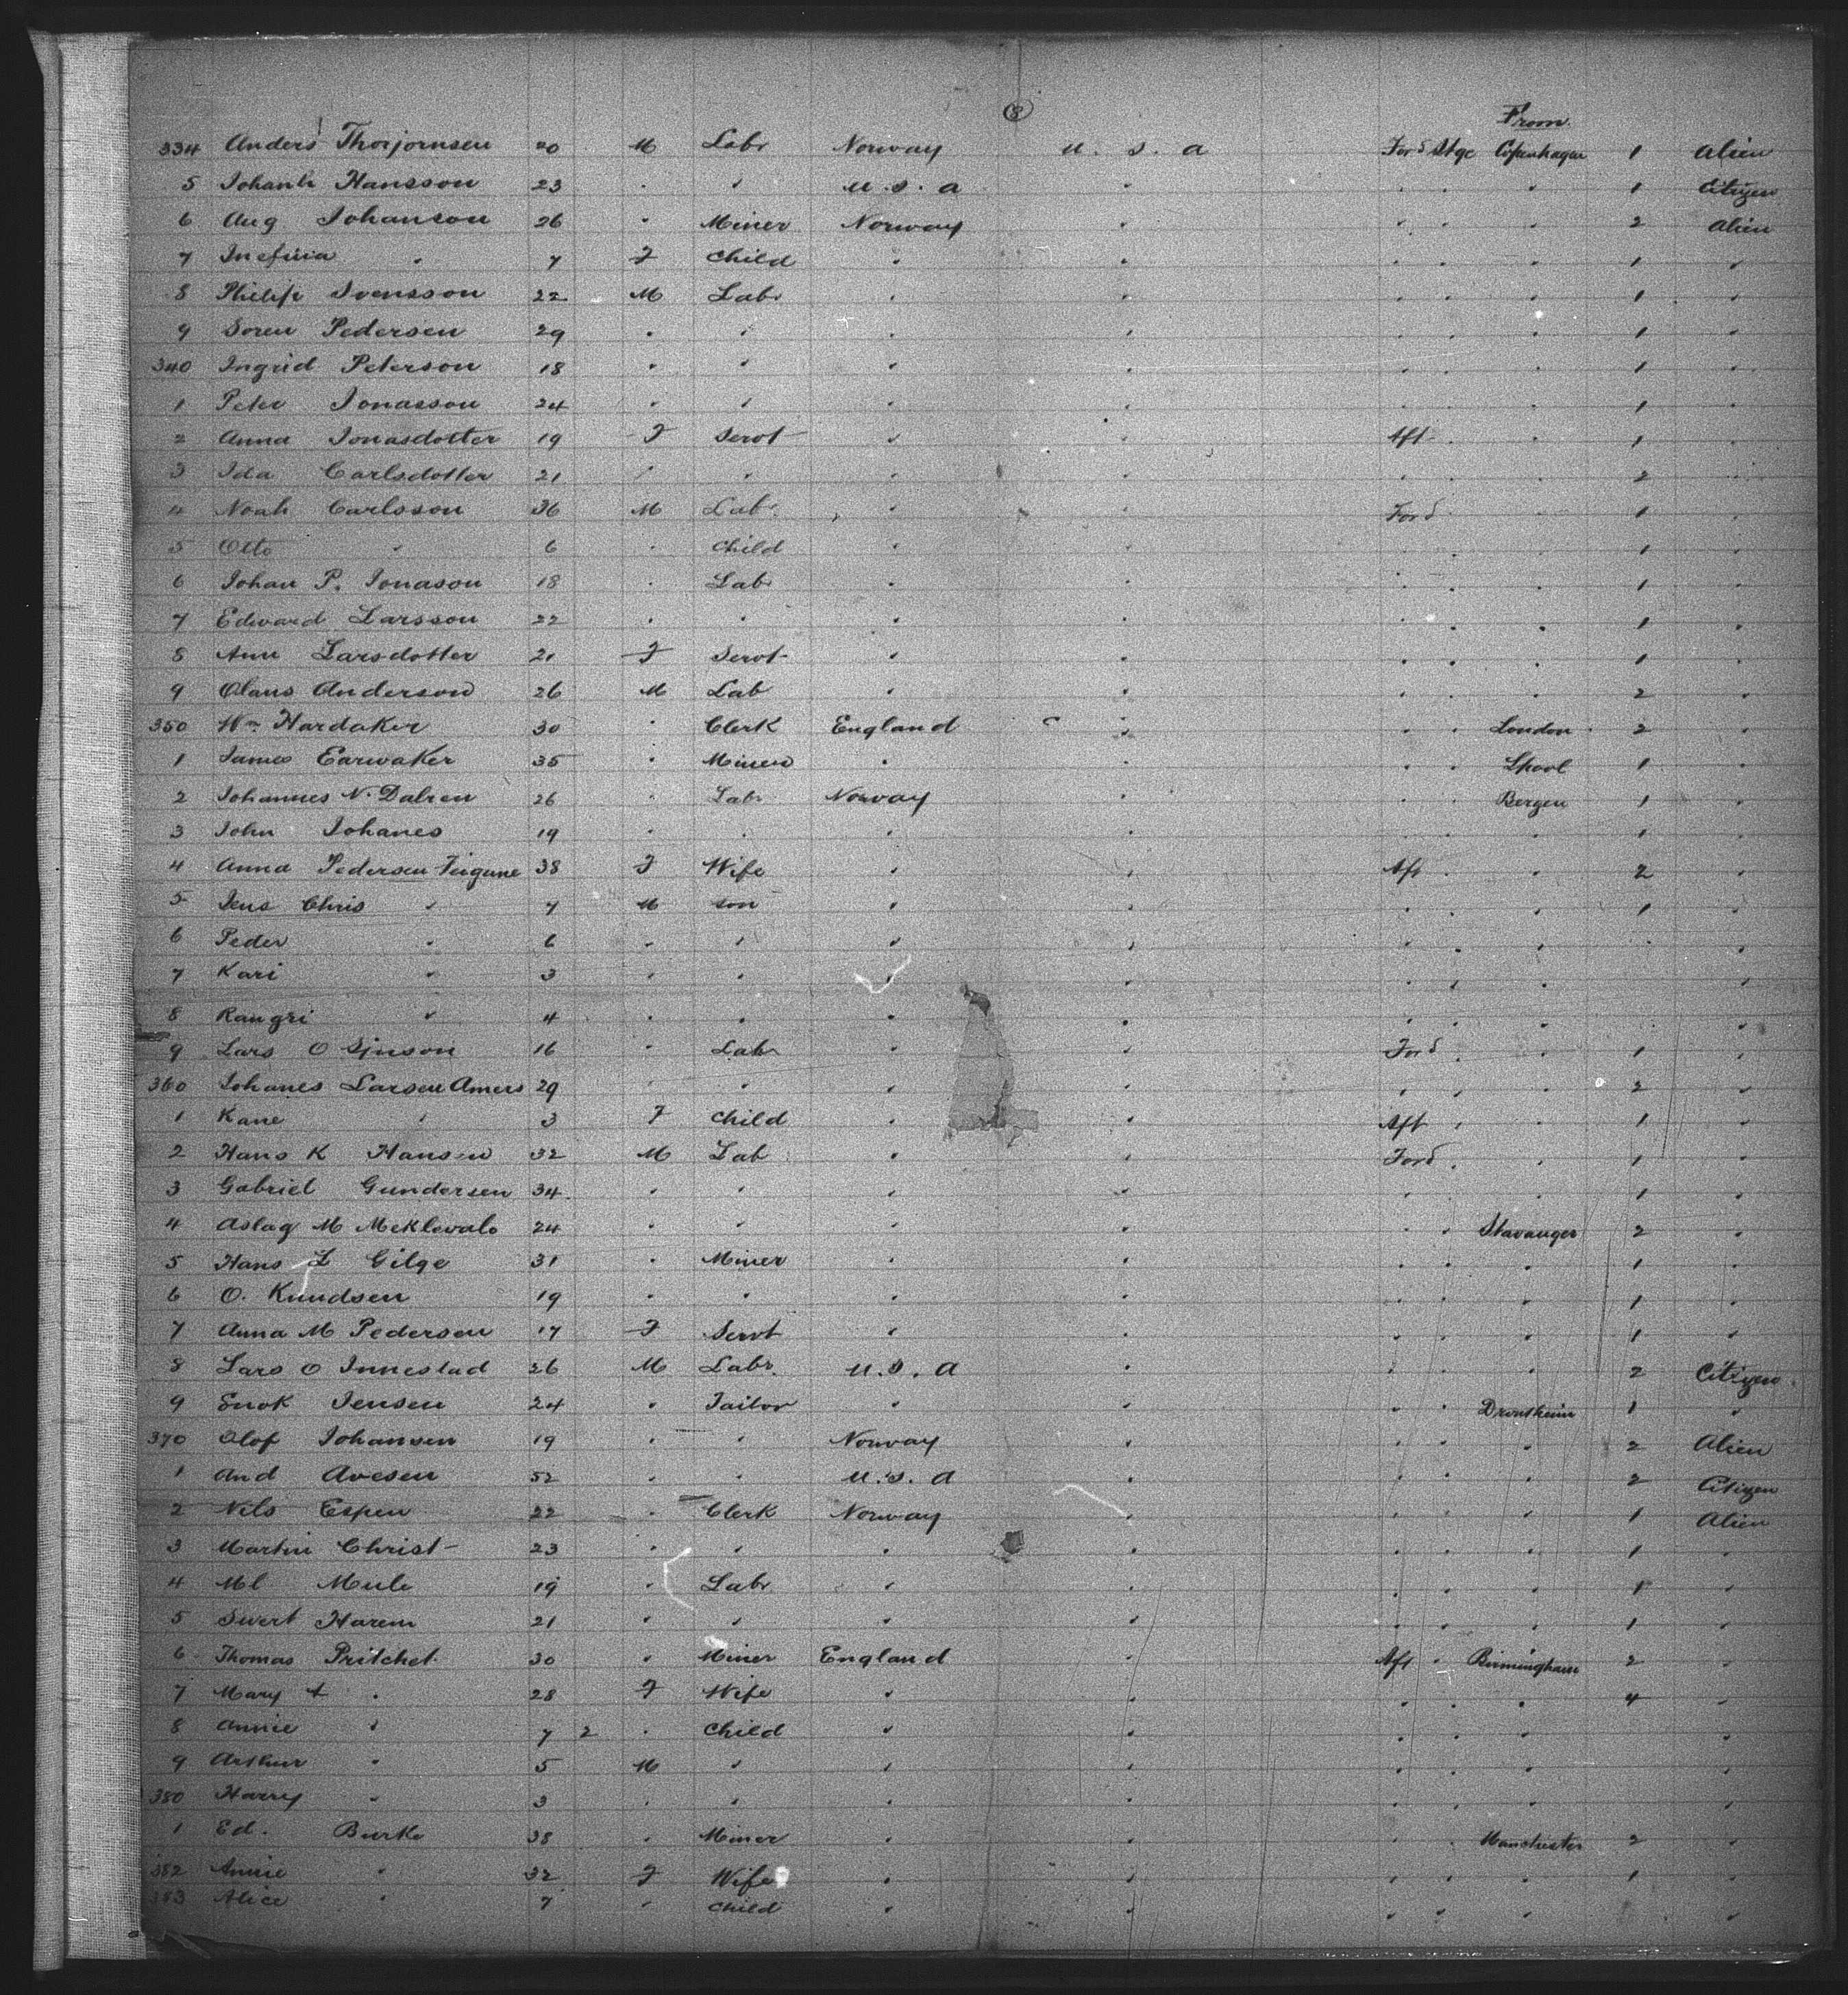 8
From
334 Anders Thorjornsen 20 M Labr Norway U. S. A Ford Stge Copenhagen 1 Alien
5 Johanh Hansson 23 " " U. S. A " " " " 1 Citizen
6 Aug Johanson 26 " Miner Norway " " " " 2 Alien
7 " 7 F Child " " " " " 1 "
8 Philip Svensson 22 M Labr " " " " " 1 "
9 Soren Pedersen 29 " " " " " " " 1 "
340 Ingrid Peterson 18 " " " " " " " 1 "
1 Peter Jonasson 24 " " " " " " " 1 "
2 Anna Jonasdotter 19 F Servt " " Aft " " 1 "
3 Ida Carlsdotter 21 " " " " " " " 2 "
4 Noah Carlsson 36 M Labr " " Ford " " 1 "
5 Otto " 6 " Child " " " " " 1 "
6 Johan P. Jonason 18 " Labr " " " " " 1 "
7 Edward Larsson 22 " " " " " " " 1 "
8 Ann Larsdotter 21 F Servt " " " " " 1 "
9 Olaus Anderson 26 M Lab " " " " " 2 "
350 Wm Hardaker 30 " Clerk England " " " London 2 "
1 James Earwaker 35 " Miner " " " " Lpool 1 "
2 Johannes N. Dalren 26 " Labr Norway " " " Bergen 1 "
3 John Johanes 19 " " " " " " " 1 "
4 Anna Pedersen 38 F Wife " " Aft " " 2 "
5 Jens Chris " 7 M son " " " " " 1 "
6 Peder " 6 " " " " " " " "
7 Kari " 3 " " " " " " " "
8 Rangri " 4 " " " " " " " "
9 Lars O 16 " Labr " " Ford " " 1 "
360 Johanes Larsen Amers 29 " " " " " " " 2 "
1 Kane " 3 F Child " " Aft " " 1 "
2 Hans K Hansen 32 M Lab " " Ford " " 1 "
3 Gabriel Gundersen 34 " " " " " " " 1 "
4 Aslag M 24 " " " " " " Stavanger 2 "
5 Hans L Gilge 31 " Miner " " " " " 1 "
6 O. Knudsen 19 " " " " " " " 1 "
7 Anna M Pedersen 17 F Servt " " " " " 1 "
8 Lars O Innestad 26 M Labr. U. S. A " " " " 2 Citizen
9 Enok Jensen 24 " Tailor " " " " Drontheim 1 "
370 Olof Johansen 19 " " Norway " " " " 2 Alien
1 And Avesen 52 " " U. S. A " " " " 2 Citizen
2 Nils Espen 22 " Clerk Norway " " " " 1 Alien
3 Martin Christ 23 " " " " " " " 1 "
4 Ml Mule 19 " Labr " " " " " 1 "
5 Swert Harem 21 " " " " " " " 1 "
6 Thomas Pritchet 30 " Miner England " Aft " Birmingham 2 "
7 Mary A " 28 F Wife " " " " " 4 "
8 Annie " 7 2 " Child " " " " " "
9 Arthur " 5 M " " " " " " "
380 Harry " 3 " " " " " " " "
1 Ed. Burke 38 " Miner " " " " Manchester 2 "
382 Annie " 32 F Wife " " " " " 1 "
383 Alice " 7 " Child " " " " " "